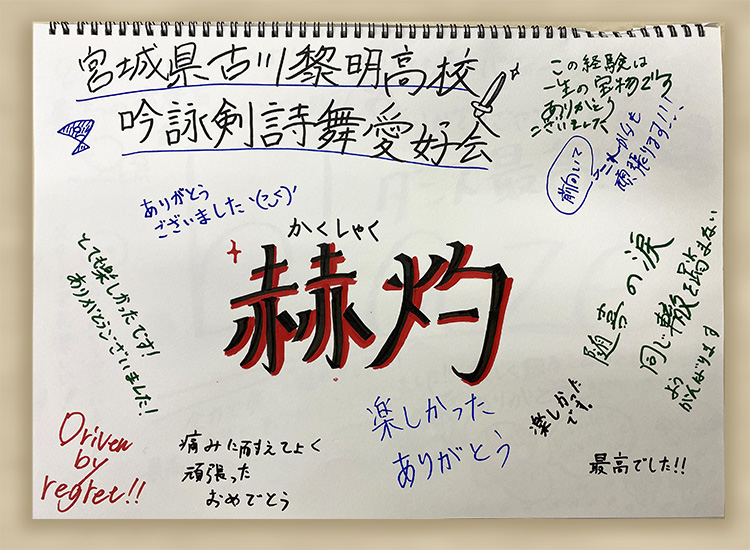 宮城県古川黎明高校
吟詠剣詩舞愛好会
この経験は
一生の宝物です
ありがとう
ございました
前向いて
これからも
頑張ります!!!
ありがとう
ございました
かくしゃく
赫灼
とても楽しかったです!
ありがとうございました!
随喜の涙
同じ轍を踏まない
よう
がんばります
楽しかった
です。
楽しかった
ありがとう
Driven
by
regret!!
痛みに耐えてよく
頑張った
おめでとう
最高でした!!